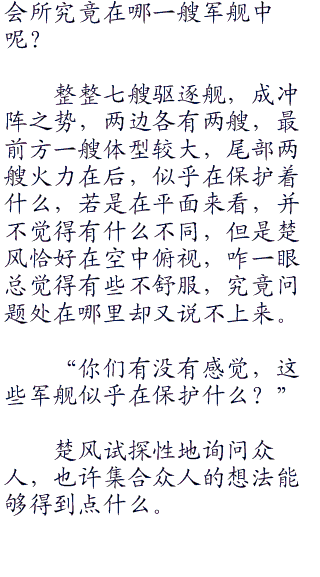 会所究竟在哪一艘军舰中
呢？
整整七艘驱逐舰，成冲
阵之势，两边各有两艘，最
前方一艘体型较大，尾部两
艘火力在后，似乎在保护着
什么，若是在平面来看，并
不觉得有什么不同，但是楚
风恰好在空中俯视，咋一眼
总觉得有些不舒服，究竟问
题处在哪里却又说不上来。
“你们有没有感觉，这
些军舰似乎在保护什么？”
楚风试探性地询问众
人，也许集合众人的想法能
够得到点什么。